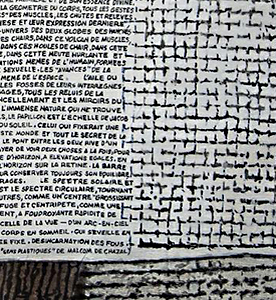 ET DE SON ESSENCE DIVINE,
LA GEOMETRIE DU CORPS, TOUS LES GESTES
DES MUSCLES, LES CHUTES ET RELEVES
LEUR EXPRESSION DERNIERE
UNIVERS DES DEUX GLOBES DES
DES CHAIRS, DANS CE VOLCAN DE MUSCLES
DANS CES HOULES DE CHAIR, DANS CETTE
DANS CETTE MEUTE HURLANTE ET
MEMES DE L'HUMAIN, FORMEES
SEXUELLE: LES "AVANCES" DE LA
MEME DE L'ESPACE. L'AILE OU
LES FOSSES DE LEURS INTERREGNES
TOUS LES RELUIS DE LA
ET LES MIROIRS DU
L'IMMENSE NATURE QUI NE TROUVE
LE PAPILLON EST L'ECHELLE DE JACOB
DU SOLEIL. CELUI QUI FIXERAIT UNE
MONDE ET TOUT LE SECRET DE LA
LE PONT ENTRE LES DEUX AINE D'UN
DE VOIR DEUX CHOSES A LA FOIS, POUR
D'HORIZON, A ELEVATIONS EGALES, ET
L'HORIZON SUR LA RETINE. LA BARRE
CONSERVER TOUJOURS SON EQUILIBRE
LE SPECTRE SOLAIRE, ET
EST LE SPECTRE CIRCULAIRE, TOURNANT
AUTRES, COMME UN "CENTRE" GROSSISSANT
ET CENTRIPETE, COMME UNE
A FOUDROYANTE RAPIDITE DE
CELLE DE LA VUE — D'UN ARC-EN-CIEL
CORPO EN SOMMEIL, QUI S'EVEILLE
FIXE, DESINCARNATION DES FOUS!
"SENS PLASTIQUES" DE MALCOLM DE CHAZAL